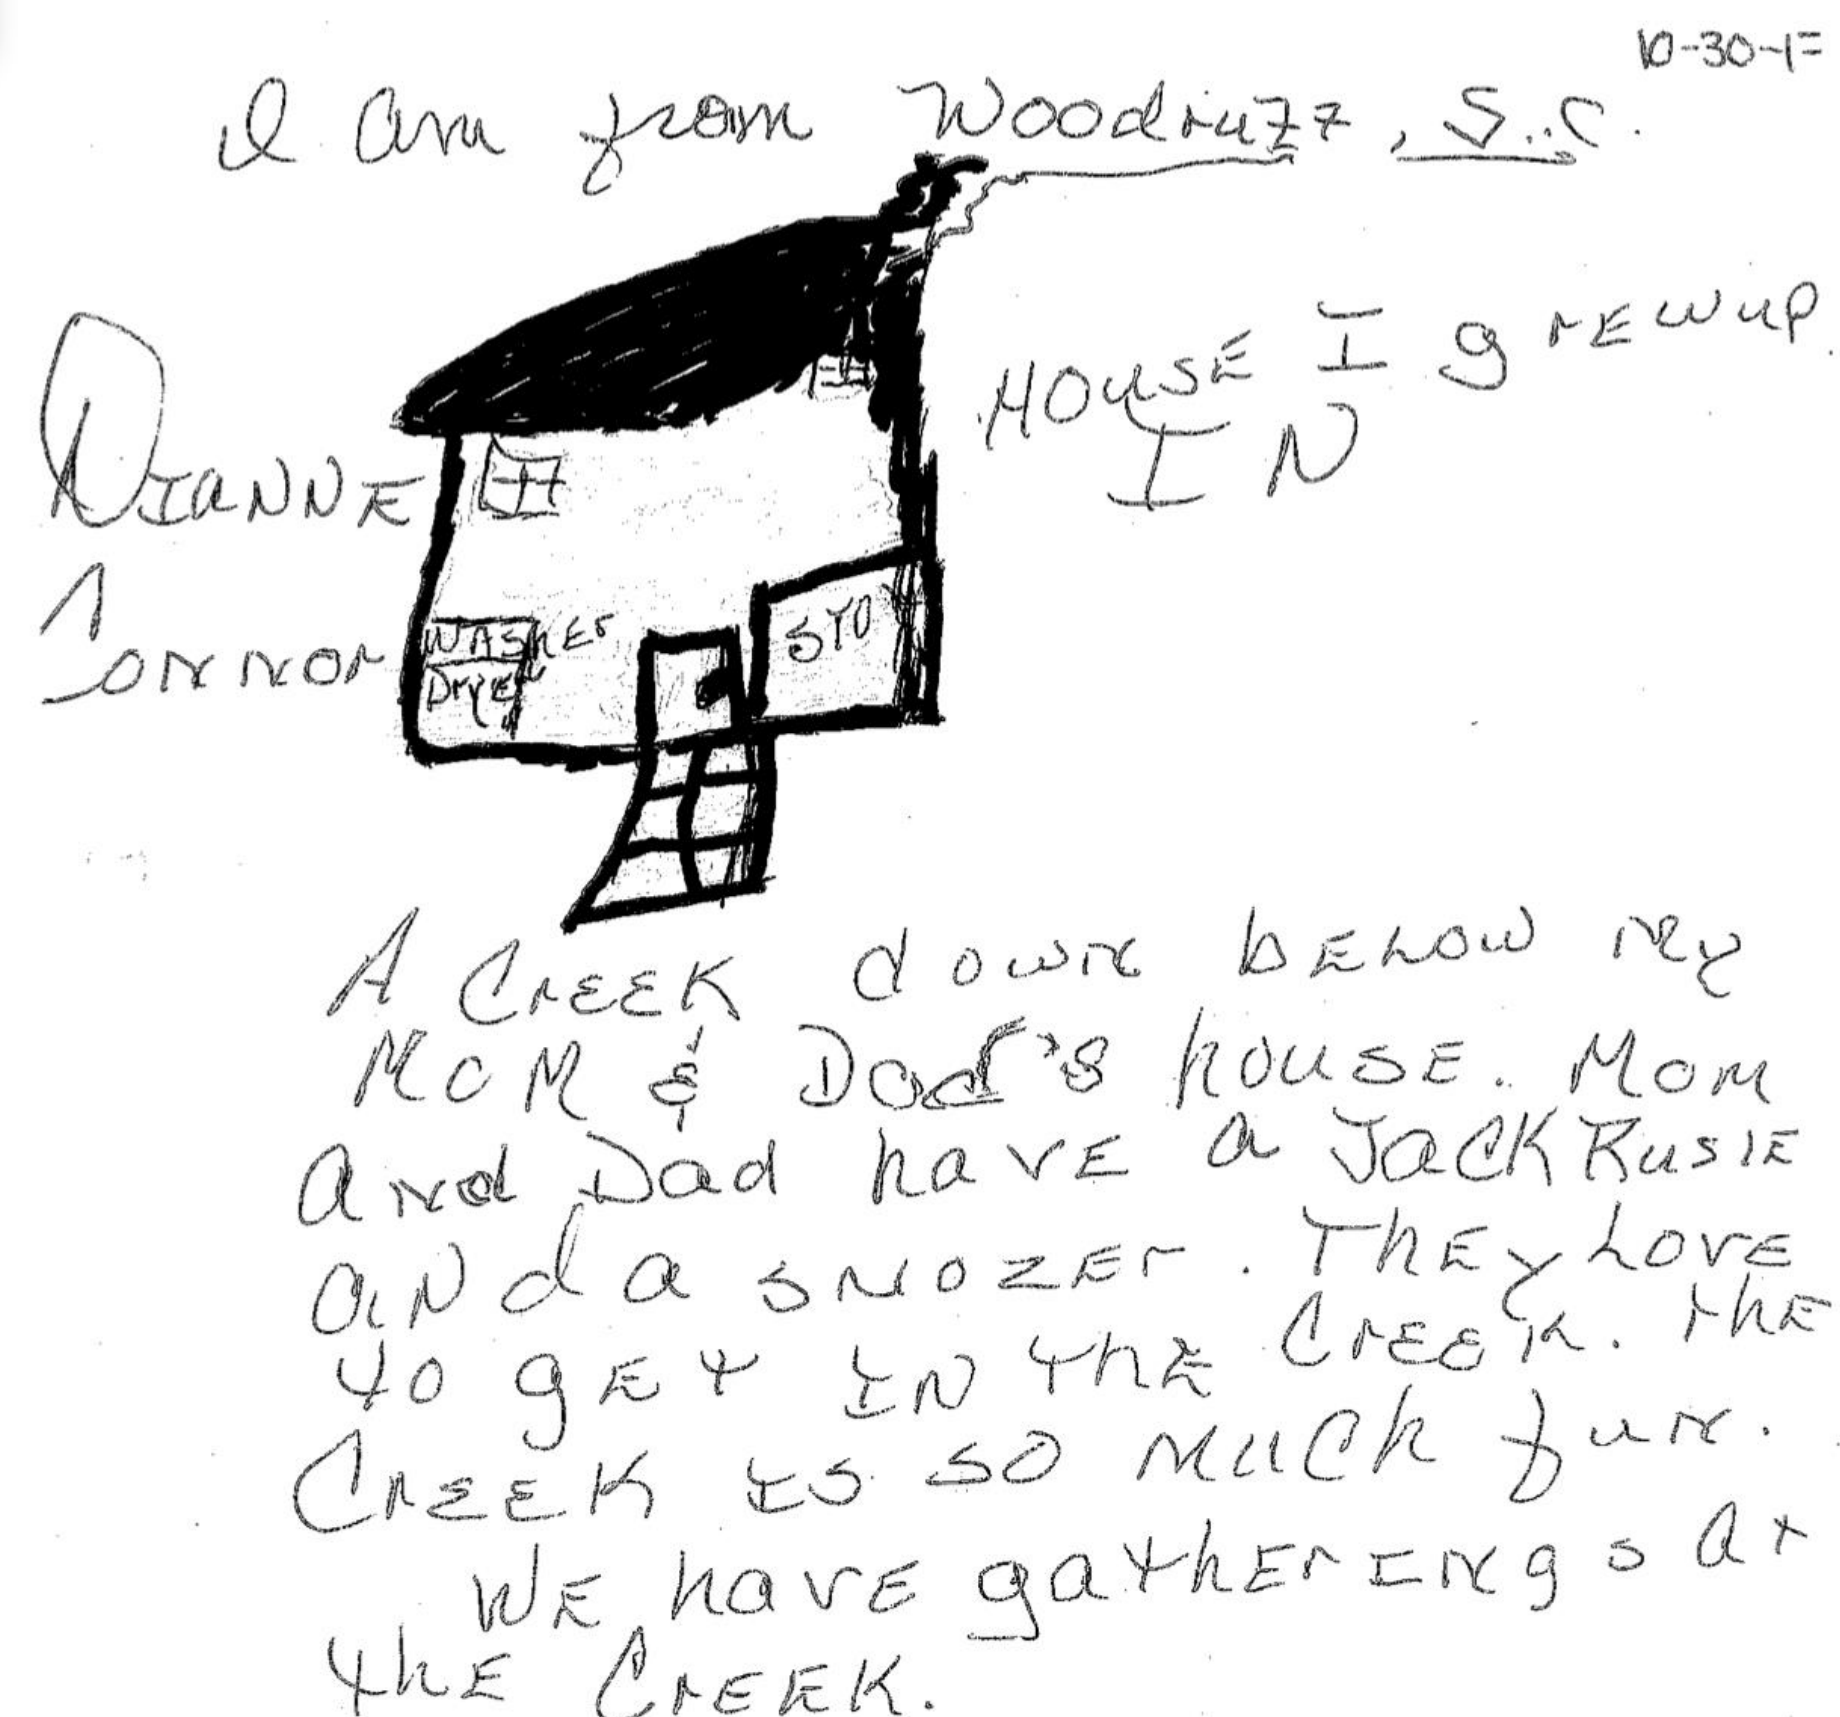 10-30-1
I am from Woodruff, S.C.
HOUSE I grewup
IN
DIANNE
Connor
WASHER
Dryer
STO
A Creek down below my
Mom & Dad's house. Mom
and Dad have a Jack Rusie
and a snozer. They Love
to get in the Creek. the
Creek is so much fun.
We have gatherings at
the Creek.